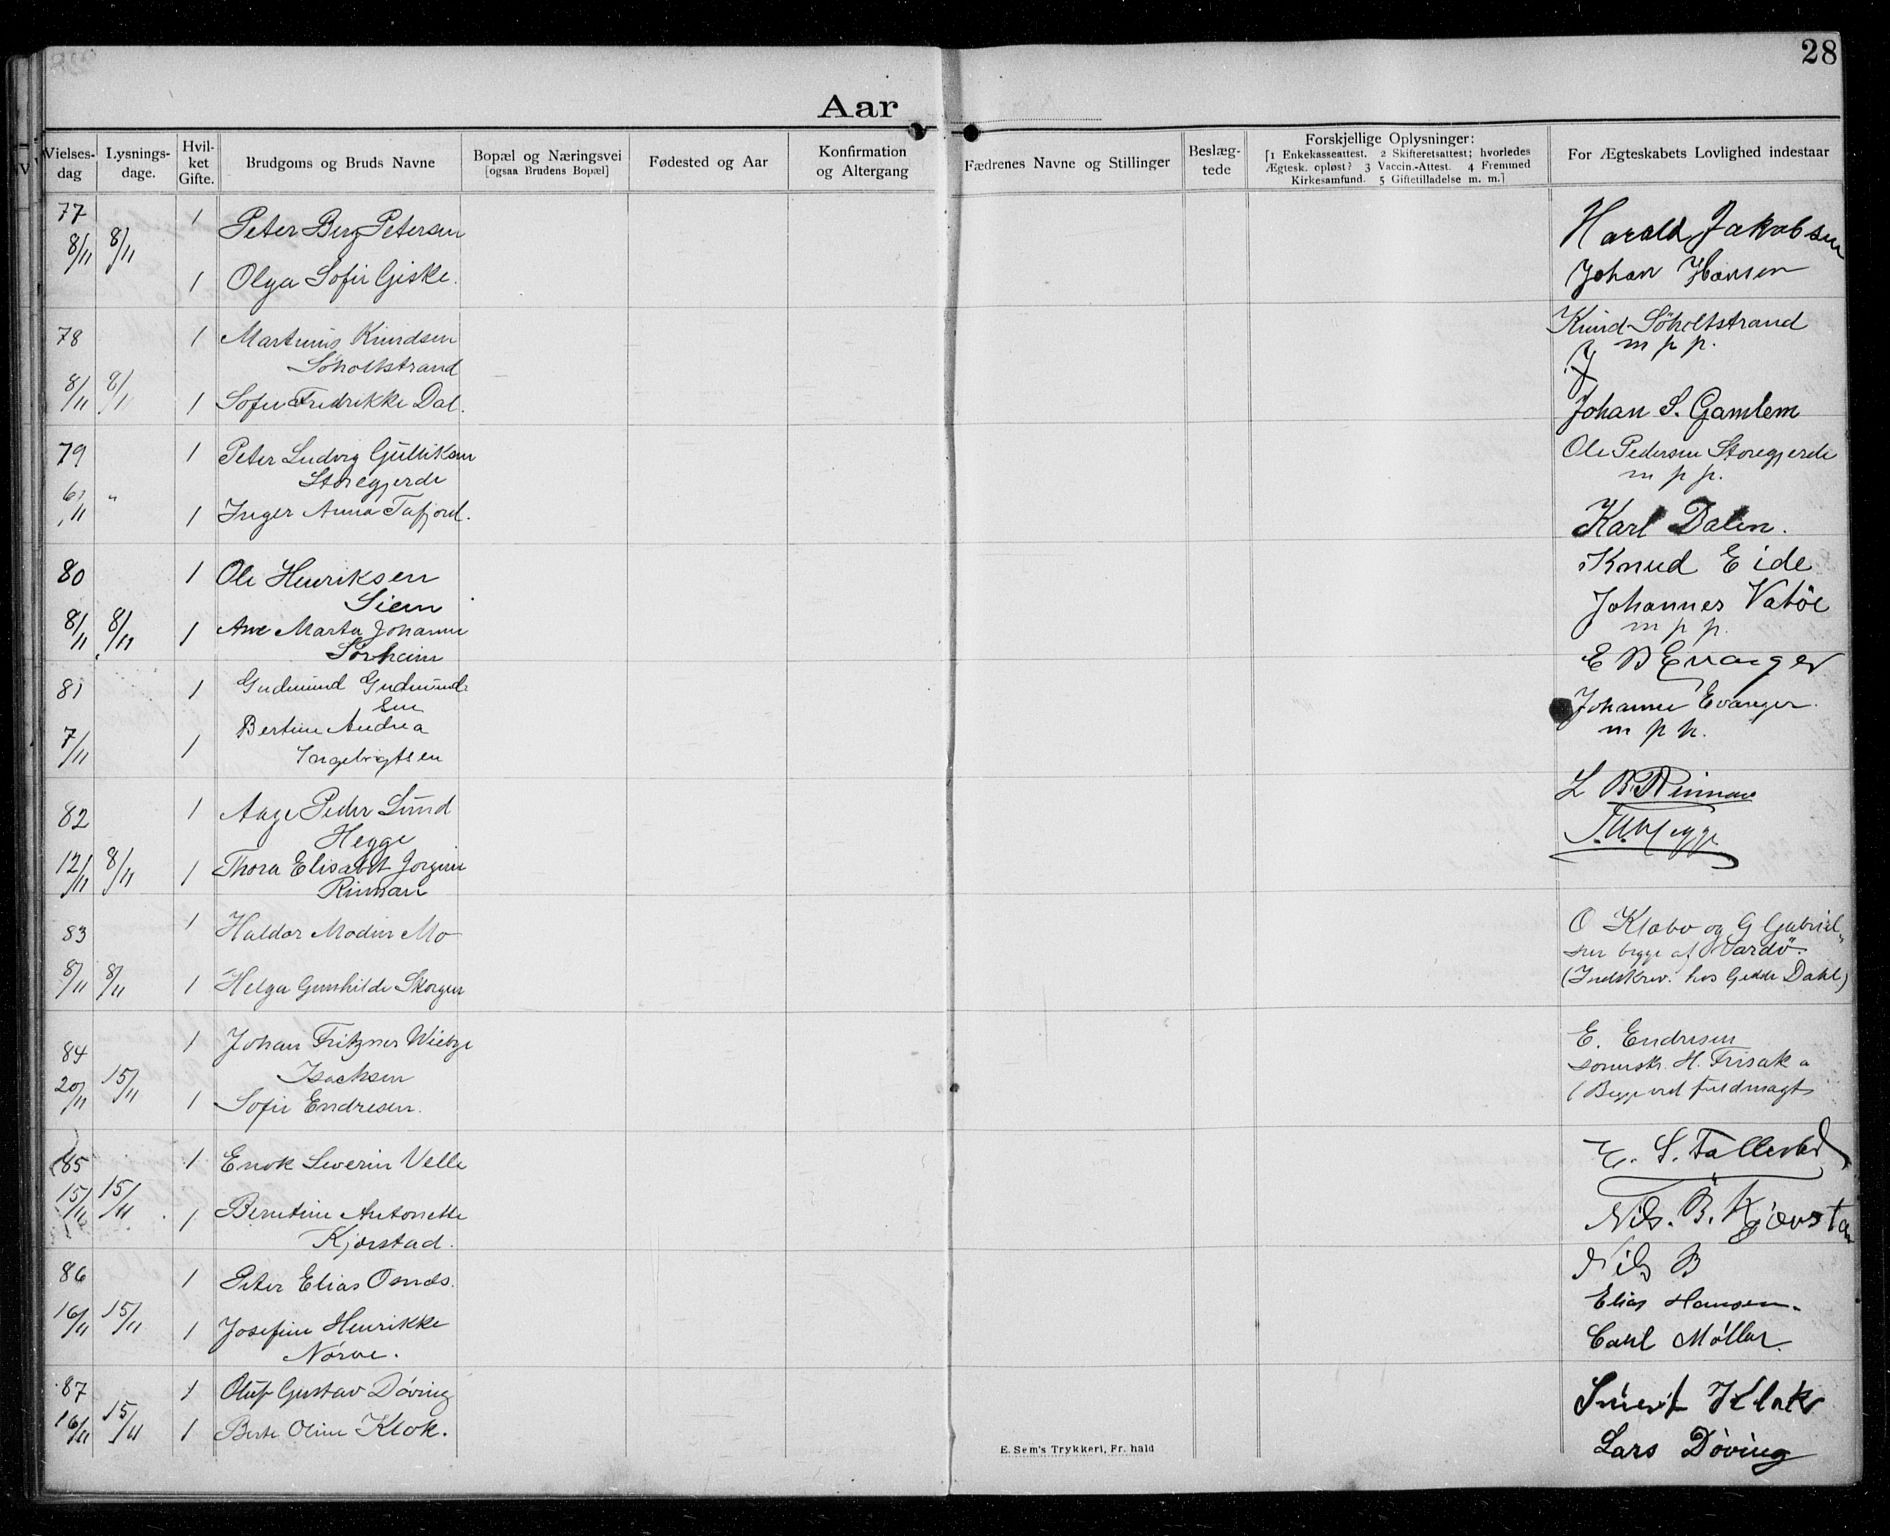 28
Aar
Vielses-dag
Lysnings-dage.
Hvil-ket Gifte.
Brudgoms og Bruds Navne
Bopæl og Næringsvei
[ogsaa Brudens Bopæl]
Fødested og Aar
Konfirmation
og Altergang
Fædrenes Navne og Stillinger
Beslæg-tede
Forskjellige Oplysninger:
[1 Enkekasseattest. 2 Skifteretsattest; hvorledes
Ægtesk. opløst? 3 Vaccin.-Attest. 4 Fremmed
Kirkesamfund. 5 Giftetilladelse m. m.]
For Ægteskabets Lovlighed indestaar
77 1 Peter Berg Petersen Harald Jakobsen
8/11 8/11
1 Olga Sofie Giske. Johan Hansen
78 1 Martinus Knudsen Knud Søholtstrand
Søholtstrand m p p.
8/11 8/11 1 Sofie Fredrikke Dal. Johan S. Gamlem
79 1 Peter Ludvig Gulliksen Ole Pedersen Storegjerde
Storegjerde m p p.
6/11 " 1 Inger Anna Tafjord. Karl Dalen.
80 1 Ole Henriksen Knud Eide
Siem Johannes Vatöe
8/11 8/11 1 Ane Marta Johanne m p p.
Sørheim E B Evanger
81 1 Gudmund Gudmund-
sen Johanne Evanger.
7/11 1 Bertine Andrea m p p.
Ingebrigtsen
82 1 Aage Peder Lund L B Rinnan
Hegge
12/11 8/11 1 Thora Elisabet Jorgine Hegge
Rinnan
83 1 Haldor Modin Mo O Klæbo og G Gabriel-
sen begge af Vardö.
8/11 8/11 1 Helga Gunhilde Skorgen (Indskrev. hos Gedde Dahl)
84 1 Johan Fritzner Wiebye E. Endresen
Isachsen H. Frisak
20/11 15/11 1 Sofie Endresen. (Begge ved fuldmagt
85 1 Enok Severin Velle E. S. Tallerås
15/11 15/11 1 Berntine Antonette Nils. B. Kjærsta
Kjærstad.
86 1 Peter Elias Osnes. Nils B
Elias Hansen.
16/11 15/11 1 Josefine Henrikke Carl Møller.
Nørve.
87 1 Oluf Gustav Døving Sivert Klok
16/11 15/11 1 Berte Oline Klok. Lars Døving
E. Sem's Trykkeri, Fr.hald